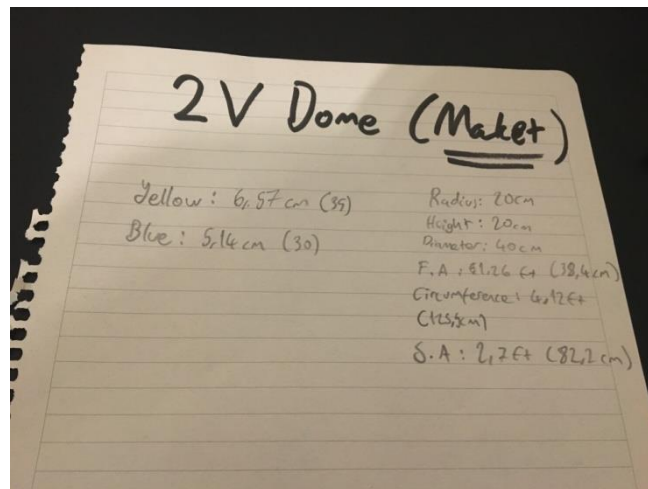 2V Dome (Maket)
Yellow: 6,57 cm (35)
Blue: 5,14 cm (30)
Radius: 20cm
Height: 20cm
Diameter: 40cm
F.A: 1,26 ft (38,4cm)
Circumference: 4,12ft
(125,5cm)
S.A: 2,7ft (82,2cm)